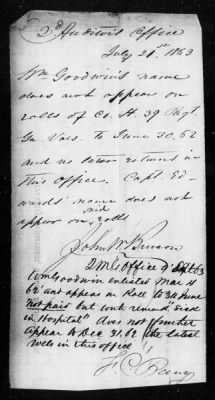 2d Auditor's Office
July 21st 1863
Wm Goodwin's name
does not appear on
rolls of Co. H. 39 Regt
Ga. Vols. to June 30, 62
and no later returns in
this office. Capt. Ed-
wards' name does not
appear on said rolls
John W Brunson
2 M C Office 9 Sept 63
Wm Goodwin enlisted Mar 4
62 and appears on Roll to 30 June
not paid but with remark "Sick
in Hospital" Does not further
appear to Dec 31. 62 the latest
Rolls in this office